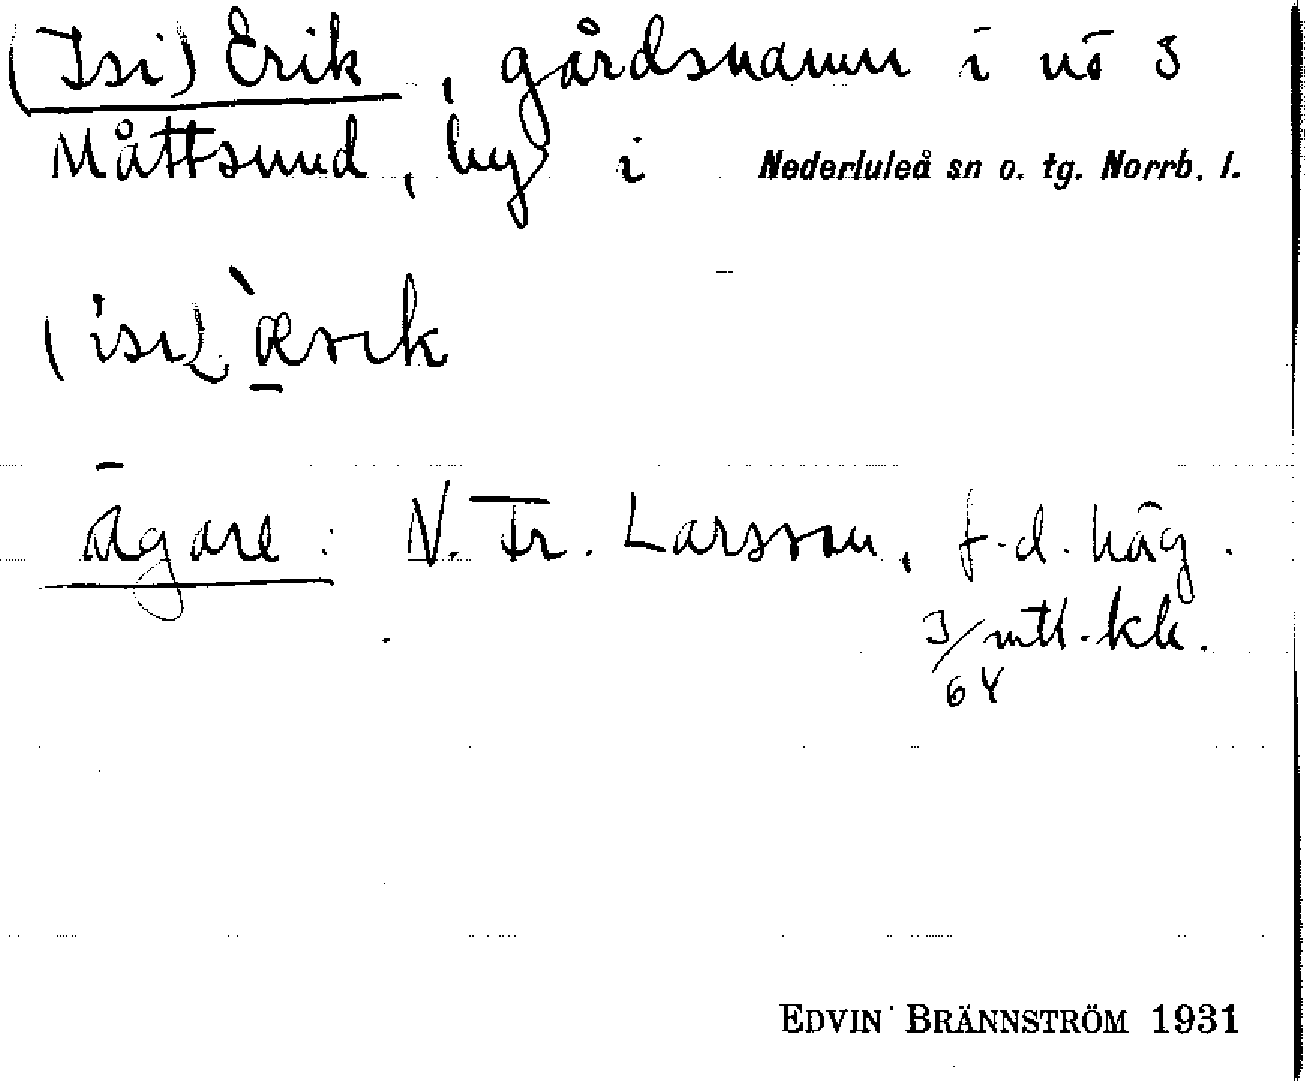 (Isi) Erik, gårdsnamn i nö 3
Måttsund, by i Nederluleå sn o. tg. Norrb. l.
(isi) ˋærik
Ägare: N. Fr. Larsson, f.d. häg.
3/64 mtl. kh.
EDVIN BRÄNNSTRÖM 1931